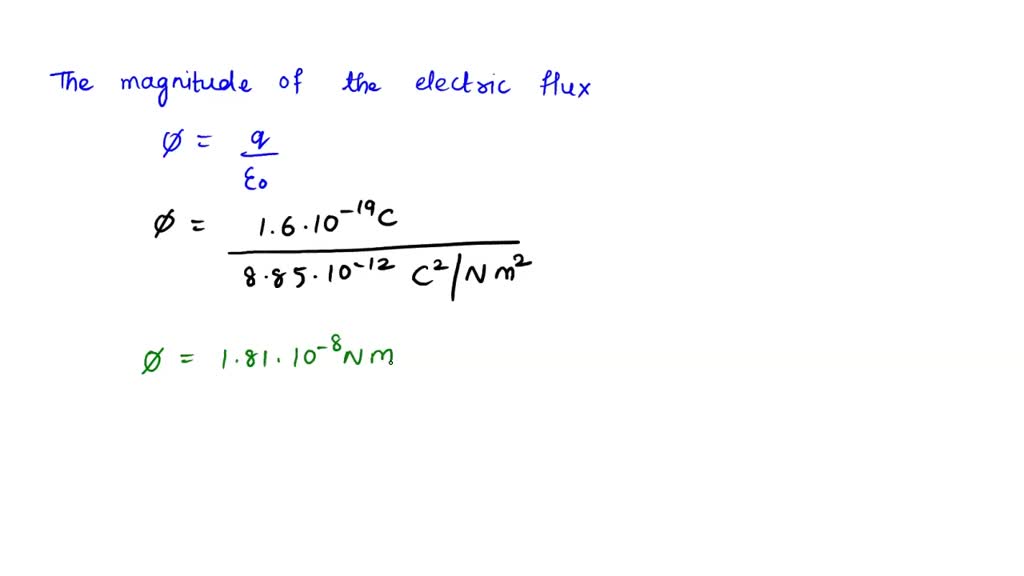 The magnitude of the electric flux
∅ = q / ε₀
∅ = 1.6·10⁻¹⁹ C / 8.85·10⁻¹² C²/Nm²
∅ = 1.81·10⁻⁸ Nm